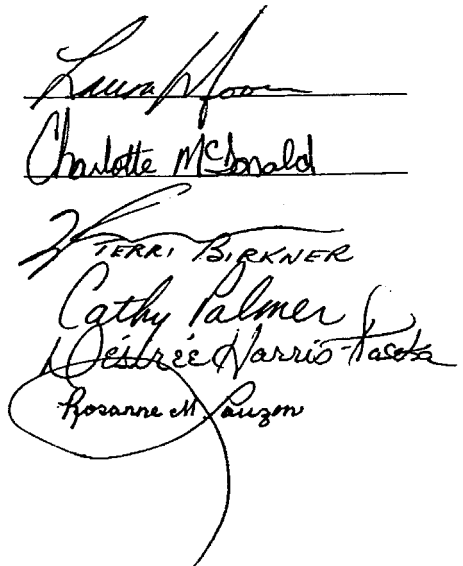 Laura Moore
Charlotte McDonald
TERRI BIRKNER
Cathy Palmer
Désirée Harris-
Rosanne M Lauzon